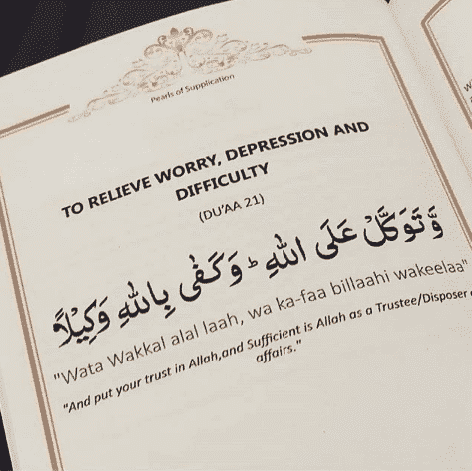 Pearls of Supplication
TO RELIEVE WORRY, DEPRESSION AND
DIFFICULTY
(DU'AA 21)
وَّتَوَكَّلۡ عَلَى اللّٰهِ ؕ وَكَفٰى بِاللّٰهِ وَكِيۡلًا
"Wata Wakkal alal laah, wa ka-faa billaahi wakeelaa"
"And put your trust in Allah,and Sufficient is Allah as a Trustee/Disposer
affairs."